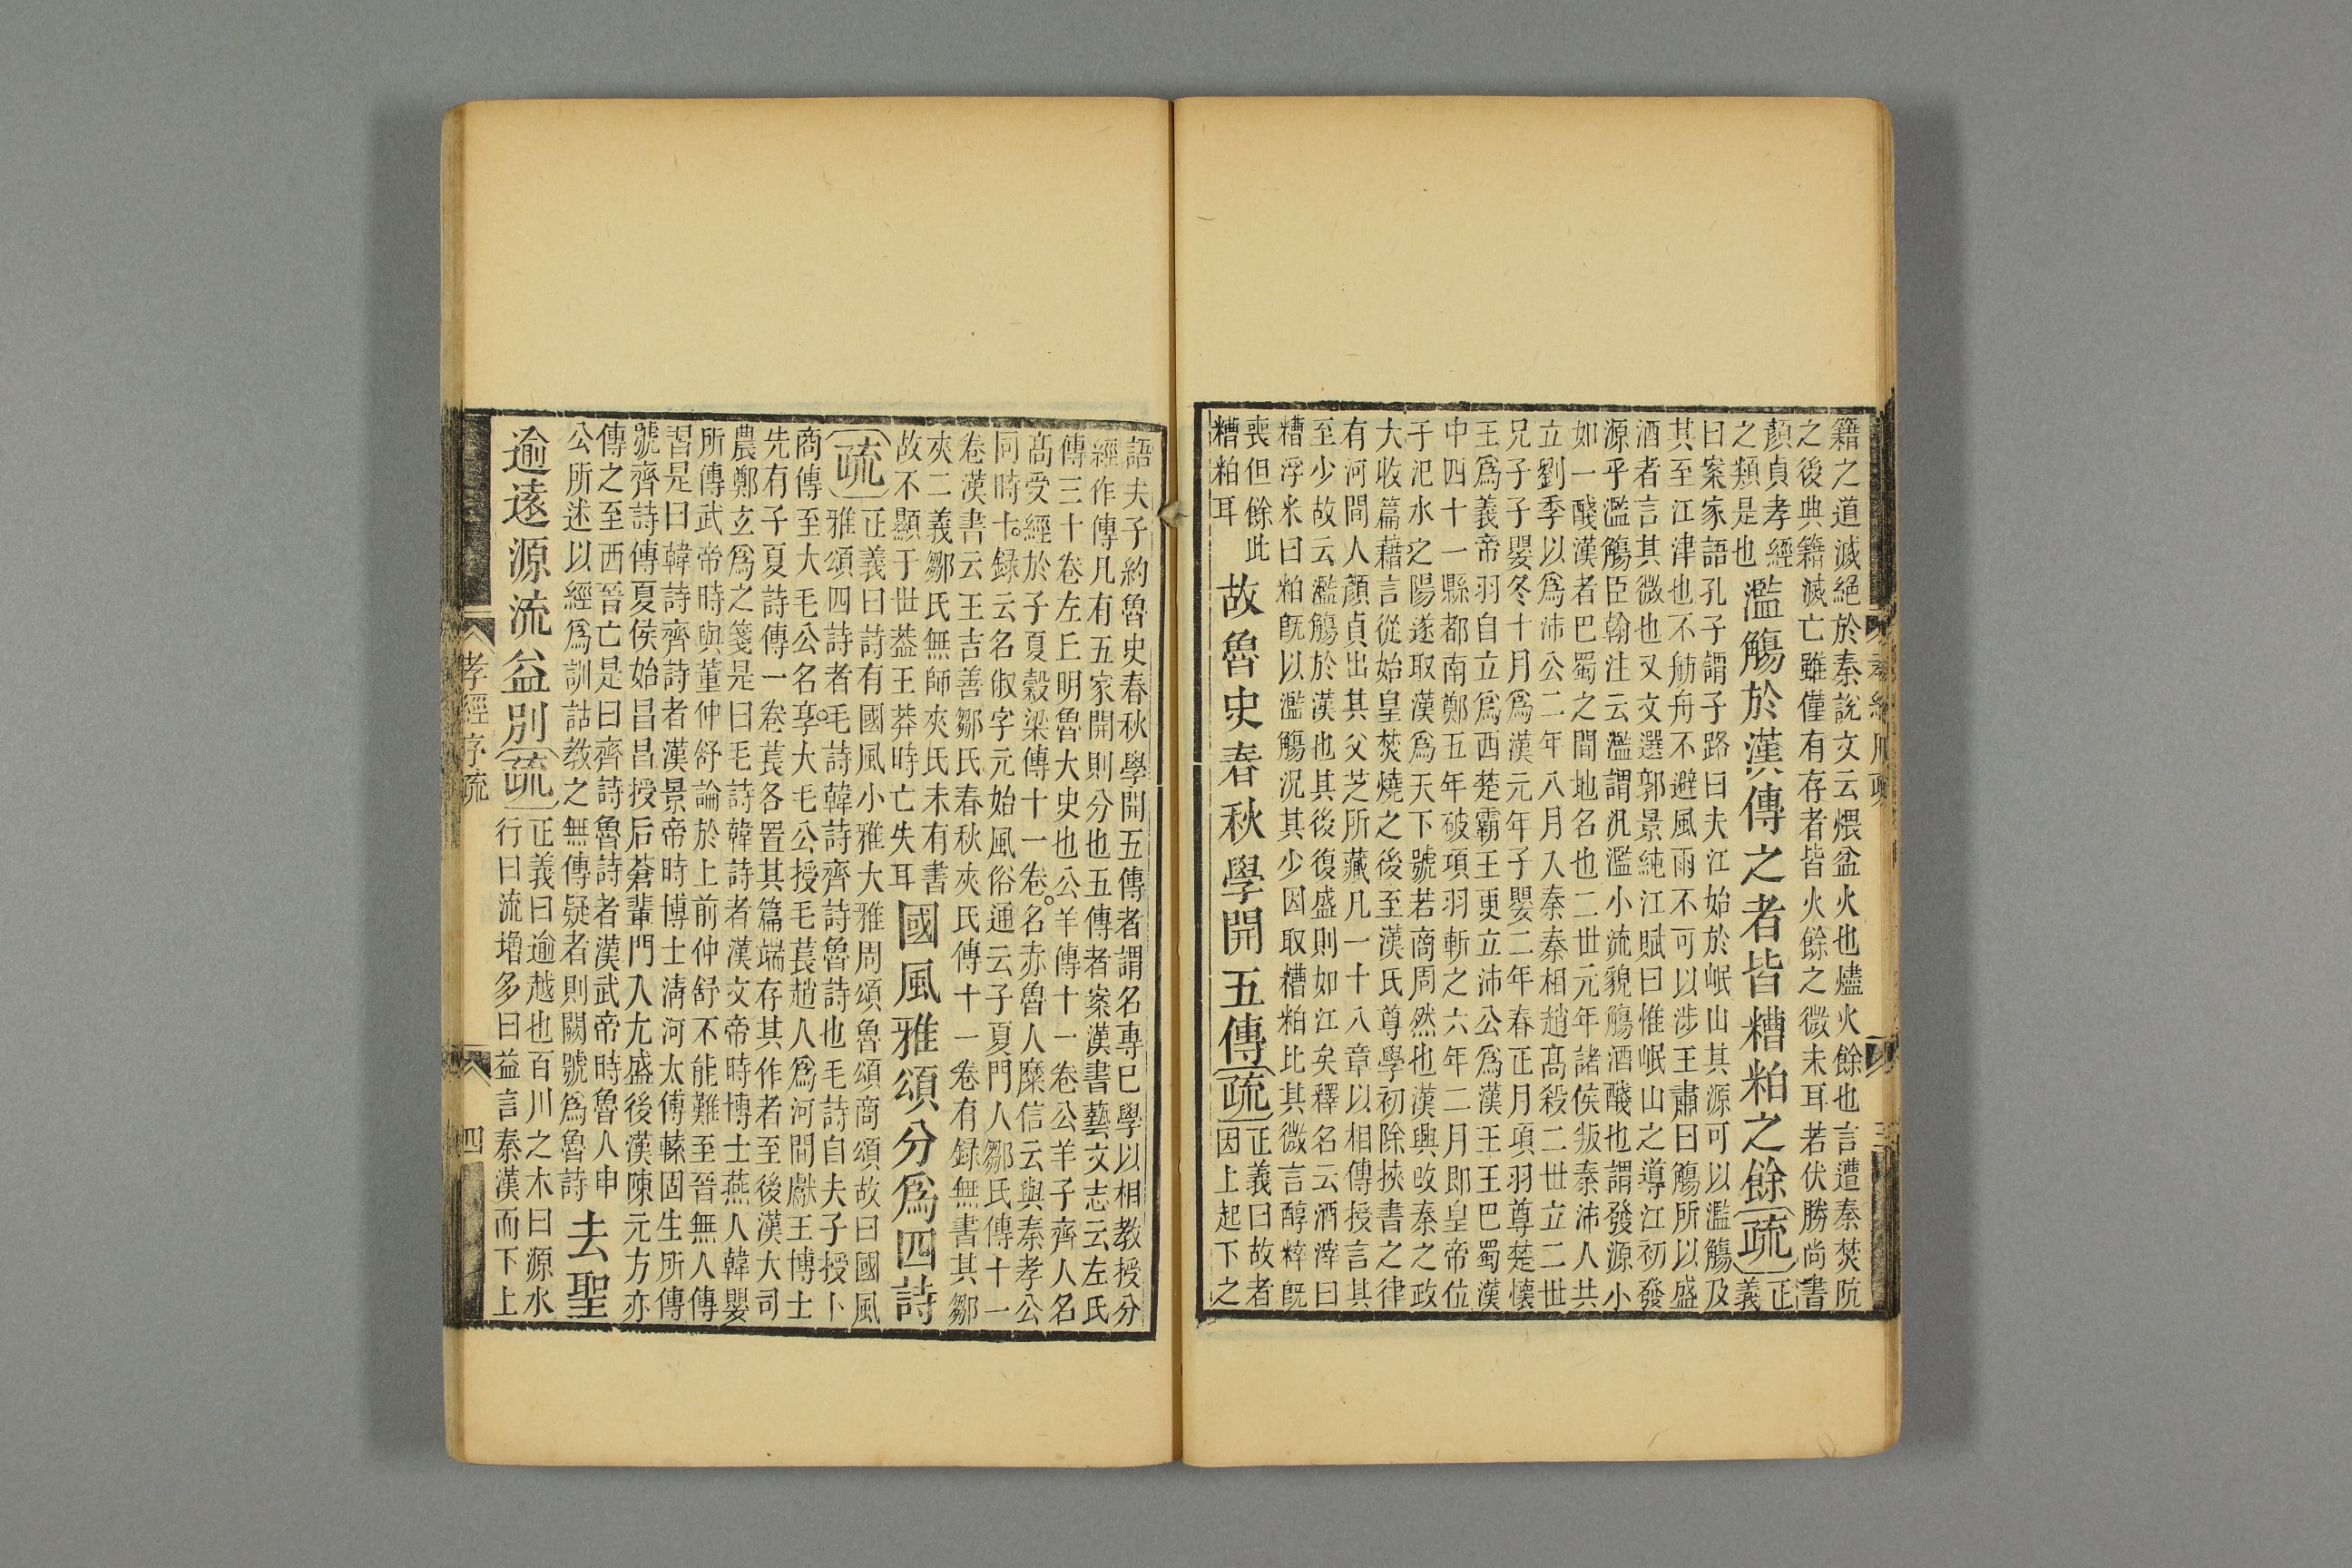 籍之道滅絕於秦說文云煨盆火也燼火餘也言遭秦焚阬
之後典籍滅亡雖僅有存者皆火餘之微末耳若伏勝尚書
顏貞孝經
之類是也
濫觴於漢傳之者皆糟粕之餘
疏
正
義
曰案家語孔子謂子路曰夫江始於岷山其源可以濫觴及
其至江津也不舫舟不避風雨不可以涉王肅曰觴所以盛
酒者言其微也又文選郭景純江賦曰惟岷山之導江初發
源乎濫觴臣翰注云濫謂汎濫小流貌觴酒醆也謂發源小
如一醆漢者巴蜀之間地名也二世元年諸侯叛秦沛人共
立劉季以爲沛公二年八月入秦秦相趙高殺二世立二世
兄子子嬰冬十月爲漢元年子嬰二年春正月項羽尊楚懷
王爲義帝羽自立爲西楚霸王更立沛公爲漢王王巴蜀漢
中四十一縣都南鄭五年破項羽斬之六年二月即皇帝位
于汜水之陽遂取漢爲天下號若商周然也漢興改秦之政
大收篇藉言從始皇焚燒之後至漢氏尊學初除挾書之律
有河間人顏貞出其父芝所藏凡一十八章以相傳授言其
至少故云濫觴於漢也其後復盛則如江矣釋名云酒滓曰
糟浮米曰粕旣以濫觴況其少因取糟粕比其微言醇粹旣
喪但餘此
糟粕耳
故魯史春秋學開五傳
疏
正義曰故者
因上起下之
孝經序疏
三
語夫子約魯史春秋學開五傳者謂名專巳學以相教授分
經作傳凡有五家開則分也五傳者案漢書藝文志云左氏
傳三十卷左丘明魯大史也公羊傳十一卷公羊子齊人名
高受經於子夏穀梁傳十一卷名赤魯人糜信云與秦孝公
同時七錄云名俶字元始風俗通云子夏門人鄒氏傳十一
卷漢書云王吉善鄒氏春秋夾氏傳十一卷有録無書其鄒
夾二義鄒氏無師夾氏未有書
故不顯于世葢王莽時亡失耳
國風雅頌分爲四詩
疏
正義曰詩有國風小雅大雅周頌魯頌商頌故曰國風
雅頌四詩者毛詩韓詩齊詩魯詩也毛詩自夫子授卜
商傳至大毛公名亨大毛公授毛萇趙人爲河間獻王博士
先有子夏詩傳一卷萇各置其篇端存其作者至後漢大司
農鄭玄爲之箋是曰毛詩韓詩者漢文帝時博士燕人韓嬰
所傳武帝時與董仲舒論於上前仲舒不能難至晉無人傳
習是曰韓詩齊詩者漢景帝時博士清河太傅轅固生所傳
號齊詩傳夏侯始昌昌授后蒼輩門人尢盛後漢陳元方亦
傳之至西晉亡是曰齊詩魯詩者漢武帝時魯人申
公所述以經爲訓詁教之無傳疑者則闕號爲魯詩
去聖
逾遠源流益別
疏
正義曰逾越也百川之本曰源水
行曰流增多曰益言秦漢而下上
孝經序疏
四